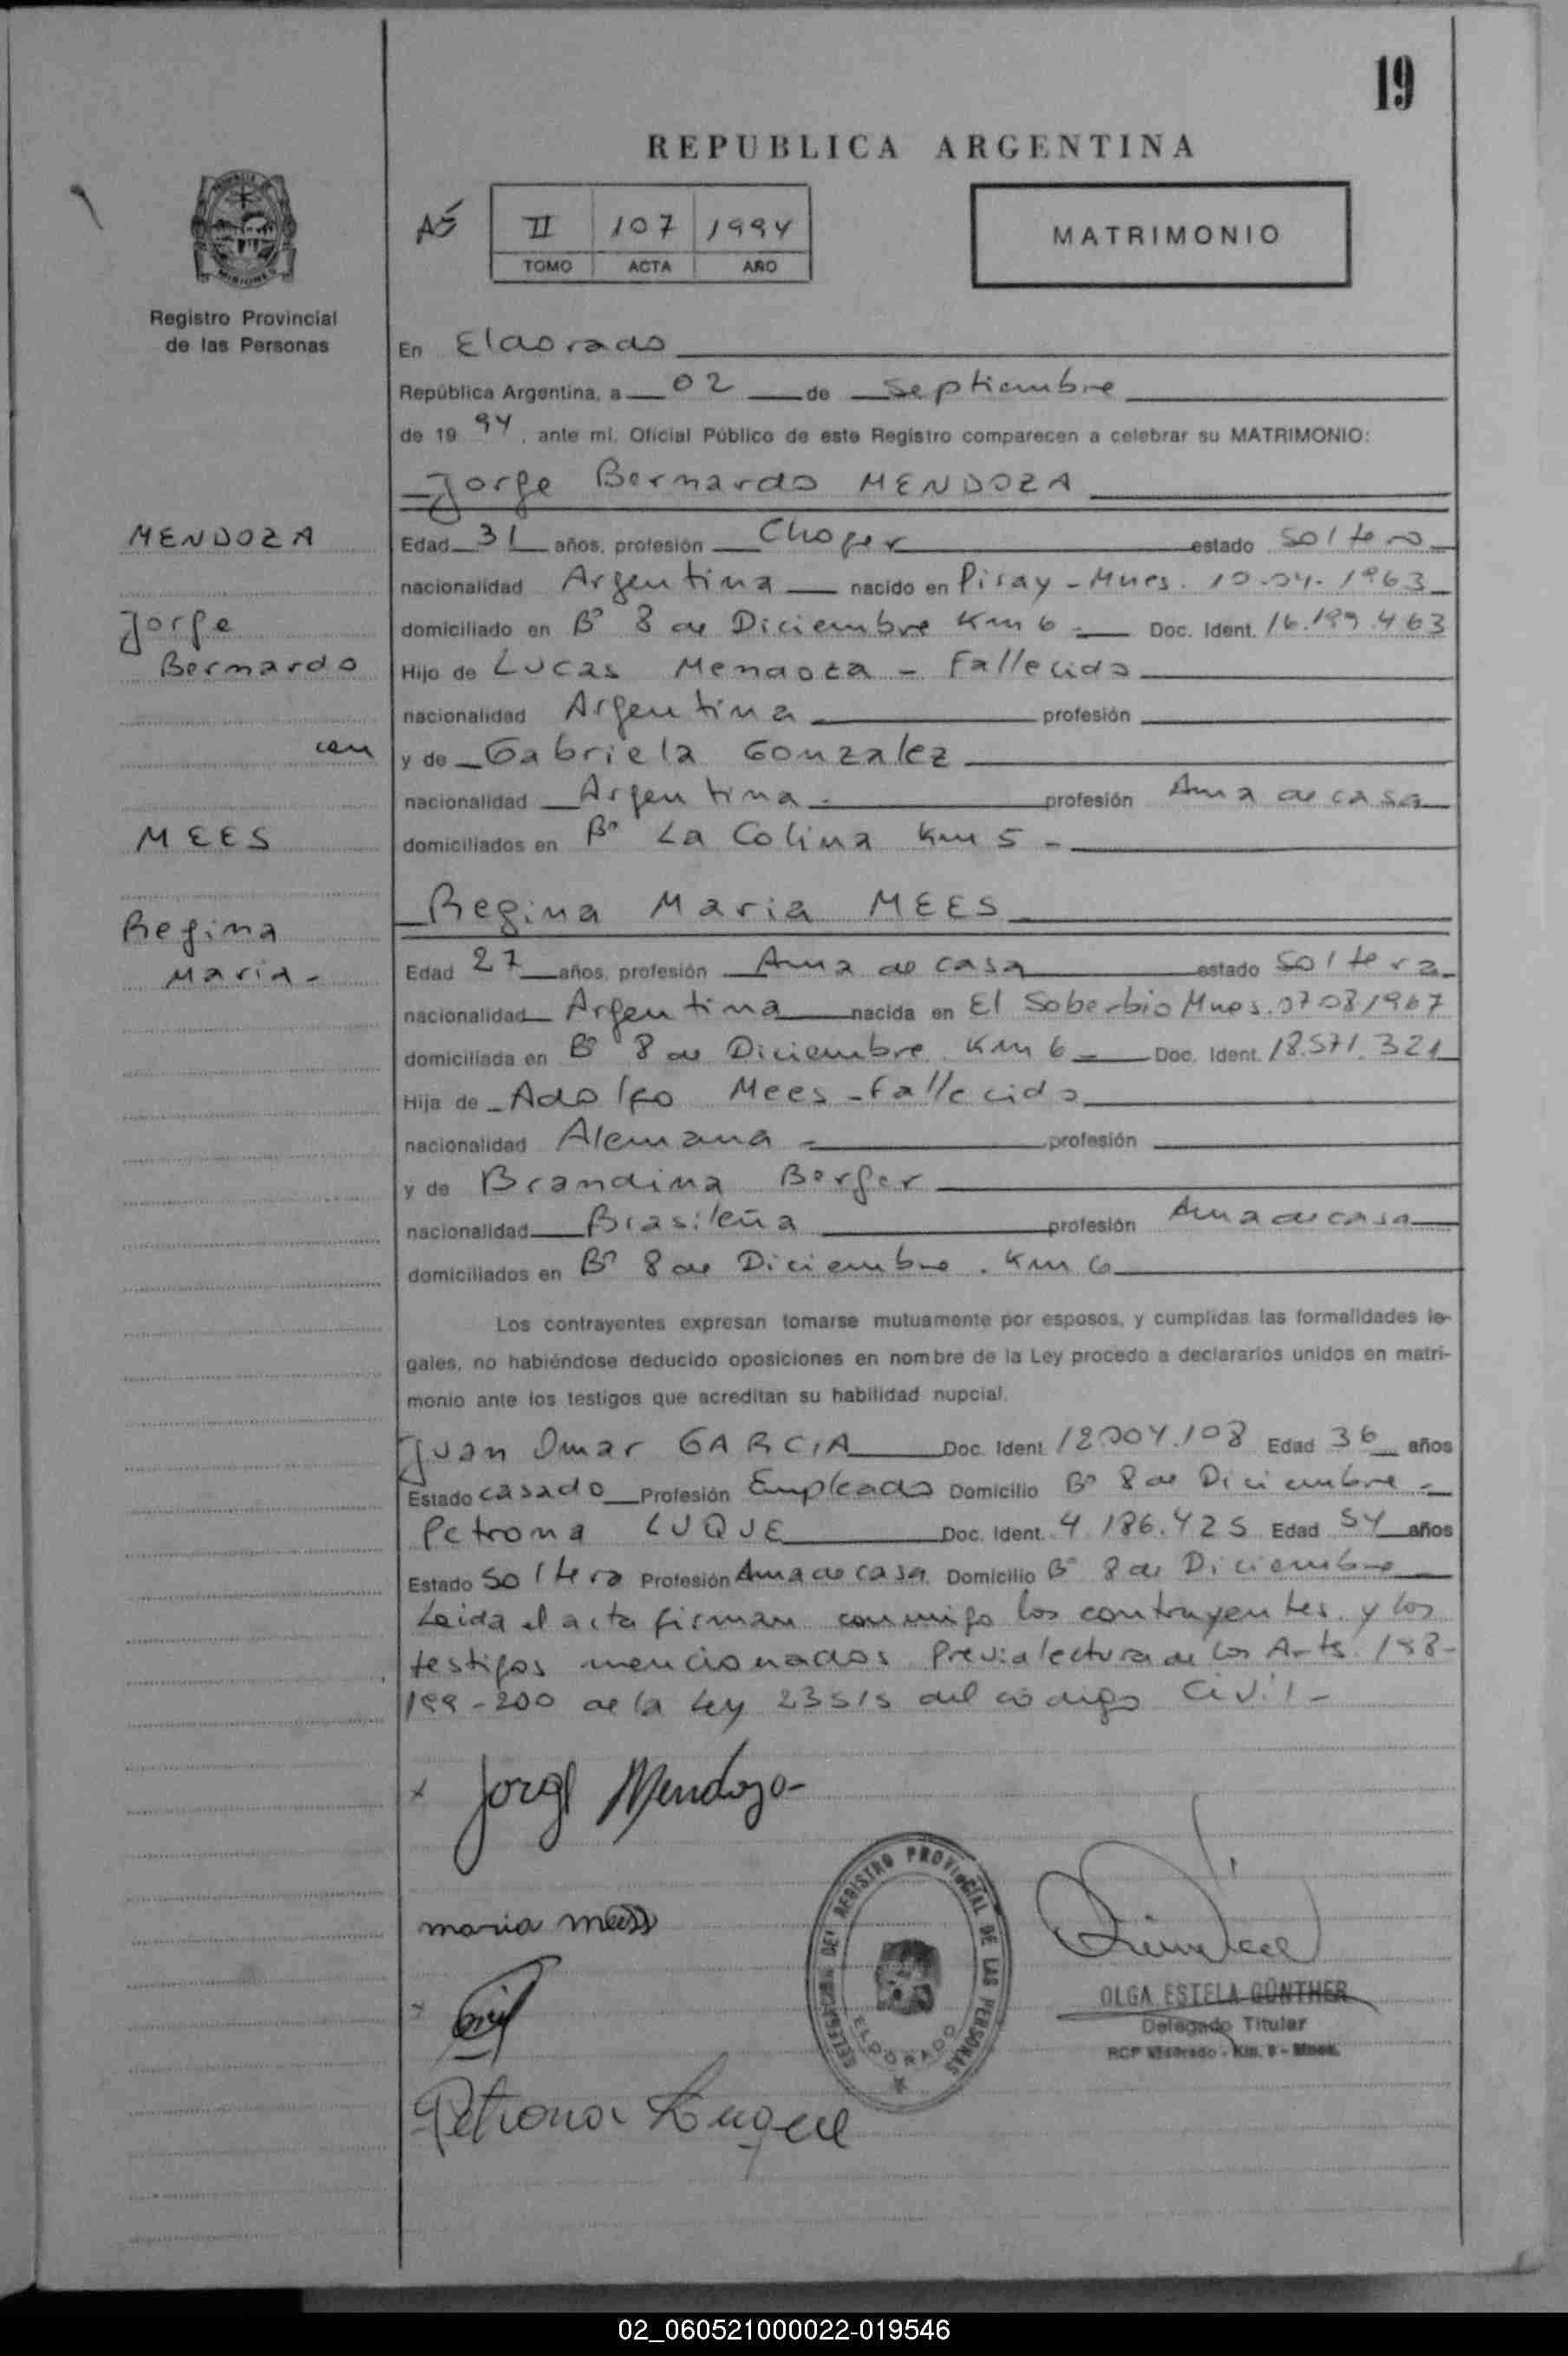 19
REPUBLICA ARGENTINA
II 107 1994
TOMO ACTA AÑO
MATRIMONIO
Registro Provincial
de las Personas
En Eldorado
República Argentina, a 02 de Septiembre
de 19 94, ante mi, Oficial Público de este Registro comparecen a celebrar su MATRIMONIO:
Jorge Bernardo MENDOZA
MENDOZA
Jorge
Bernardo
con
MEES
Regina
Maria -
Edad 31 años, profesión Chofer estado soltero
nacionalidad Argentina nacido en Piray - Mnes. 10-04-1963
domiciliado en Bº 8 de Diciembre Km 6 - Doc. Ident. 16.199.463
Hijo de Lucas Mendoza - Fallecido
nacionalidad Argentina profesión
y de Gabriela Gonzalez
nacionalidad Argentina - profesión Ama de casa
domiciliados en Bº La Colina Km 5 -
Regina Maria MEES
Edad 27 años, profesión Ama de casa estado soltera
nacionalidad Argentina nacida en El Soberbio Mnes. 07 08 1967
domiciliada en Bº 8 de Diciembre Km 6 - Doc. Ident. 18.571.321
Hija de Adolfo Mees - Fallecido
nacionalidad Alemana - profesión
y de Brandina Berger
nacionalidad Brasileña profesión Ama de casa
domiciliados en Bº 8 de Diciembre . Km 6
Los contrayentes expresan tomarse mutuamente por esposos, y cumplidas las formalidades le-
gales, no habiéndose deducido oposiciones en nombre de la Ley procedo a declararlos unidos en matri-
monio ante los testigos que acreditan su habilidad nupcial.
Juan Omar GARCIA Doc. Ident. 12.004.108 Edad 36 años
Estado casado Profesión Empleado Domicilio Bº 8 de Diciembre -
Petrona LUQUE Doc. Ident. 4.186.425 Edad 54 años
Estado soltera Profesión Ama de casa Domicilio Bº 8 de Diciembre
Leida el acta firman conmigo los contrayentes y los
testigos mencionados. Previa lectura de los Arts. 198-
199-200 de la Ley 23515 del codigo Civil -
x Jorge Mendoza
maria mees
x
Petrona Luque
DELEGACION DEL REGISTRO PROVINCIAL DE LAS PERSONAS
ELDORADO
OLGA ESTELA GÜNTHER
Delegado Titular
RCP Eldorado - Km. 9 - Mnes.
02_060521000022-019546